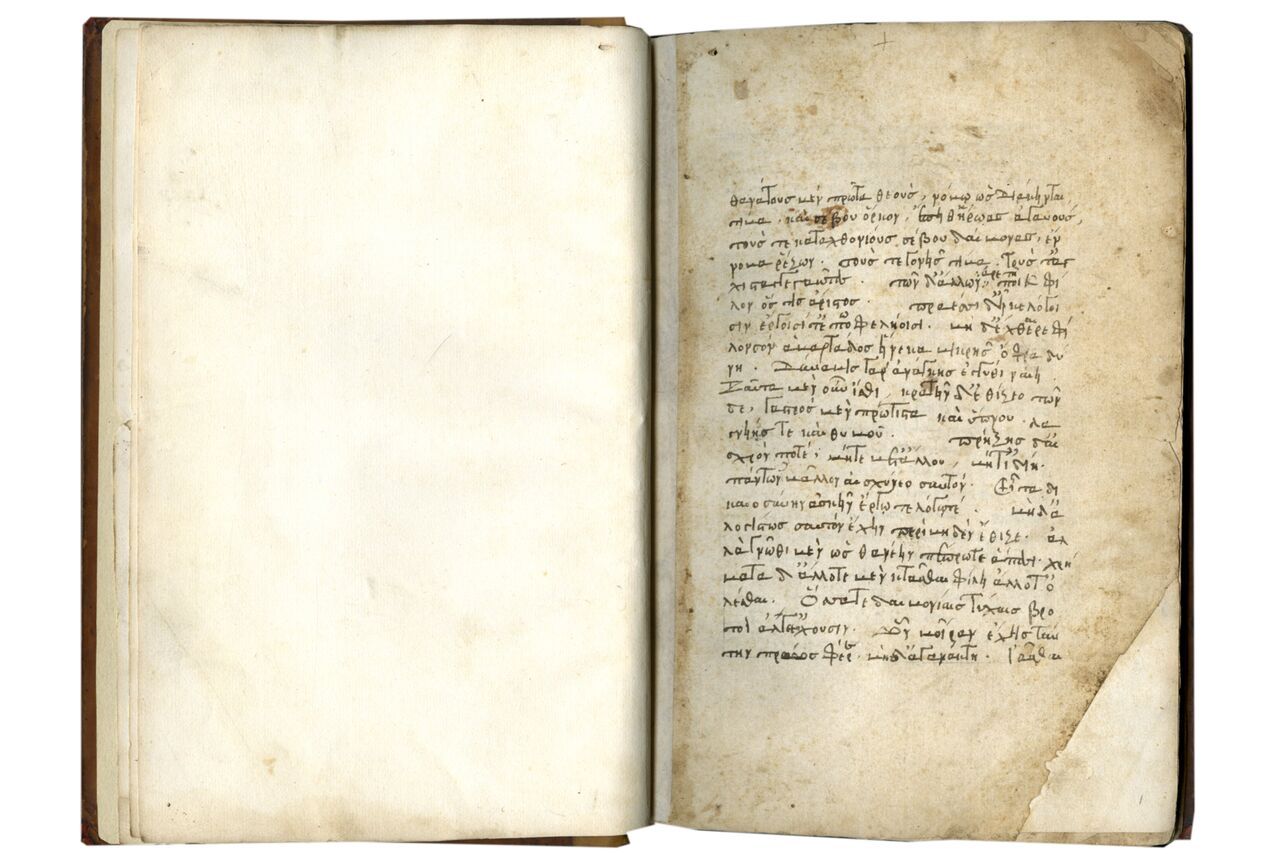 θανάτους μὲν πρῶτα θεοὺς, νόμῳ ὡς διάκηνται
τίμα . καὶ σέβου ὅρκον, ἔπειθ' ἥρωας ἀγαυούς,
τούς τε καταχθονίους σέβου δαίμονας, ἔν
νομα ῥέζων . τούς τε γονῆς τίμα . τούς τ' ἄγ
χιστα γεγαῶτας . τῶν δ' ἄλλων ἀρετῇ ποιεῦ φί
λον ὅς τις ἄριστος . πραέσι δ' εἶκε λόγοι
σιν ἔργοισί τ' ἐπωφελίησι . μὴ δ' ἔχθαιρε φί
λον σὸν ἁμαρτάδος εἵνεκα μικρῆς ὄφρα δύ
νη . δύναμις γὰρ ἀνάγκης ἐγγύθι ναίει
Ταῦτα μὲν οὕτω ἴσθι, κρατεῖν δ' ἐθίζεο τῶν
δε, γαστρὸς μὲν πρώτιστα καὶ ὕπνου . λα
γνείης τε καὶ θυμοῦ . πρήξῃς δ' αἰ
σχρόν ποτέ, μήτε μετ' ἄλλου, μήτ' ἰδίῃ .
πάντων μάλιστα αἰσχύνεο σαυτόν . Εἶτα δι
καιοσύνην ἀσκεῖν ἔργῳ τε λόγῳ τέ . μὴ δ' ἀ
λογίστως σαυτὸν ἔχειν περὶ μηδὲν ἔθιζε . ἀλ
λὰ γνῶθι μὲν ὡς θανέειν πέπρωται ἅπασι . χρή
ματα δ' ἄλλοτε μὲν κτᾶσθαι φιλεῖ ἄλλοτ' ὀ
λέσθαι . Ὅσσα τε δαιμονίαις τύχαις βρο
τοὶ ἄλγε' ἔχουσιν . ὧν μοῖραν ἔχῃς ταύ
την πράως φέρε . μηδ' ἀγανάκτει . Ἰᾶσθαι